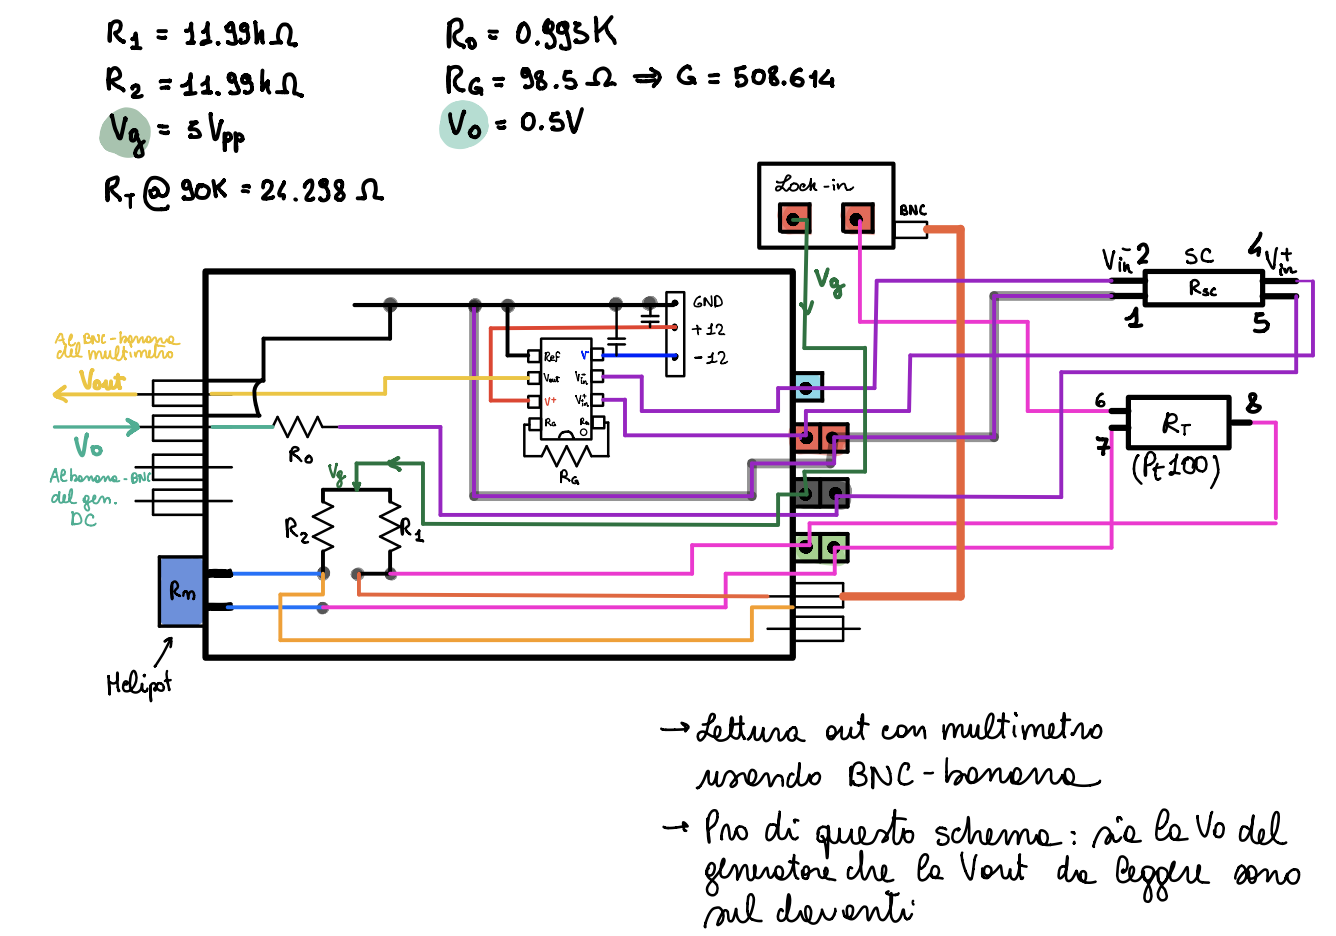 R1 = 11.99kΩ
R2 = 11.99kΩ
Vg = 5 Vpp
RT @ 90K = 24.298 Ω
R0 = 0.995K
RG = 98.5 Ω ⇒ G = 508.614
V0 = 0.5V
Lock-in
BNC
Vg
Vin- 2
SC
4 Vin+
Rsc
1
5
6
7
RT
8
(Pt100)
GND
+12
-12
Ref
V-
Vout
Vin-
V+
Vin+
RG
RG
RG
Al BNC-banana
del multimetro
Vout
V0
Al banana-BNC
del gen.
DC
R0
Vg
R2
R1
Rm
Helipot
→ Lettura out con multimetro
usando BNC-banana
→ Pro di questo schema: sia la V0 del
generatore che la Vout da leggere sono
sul davanti